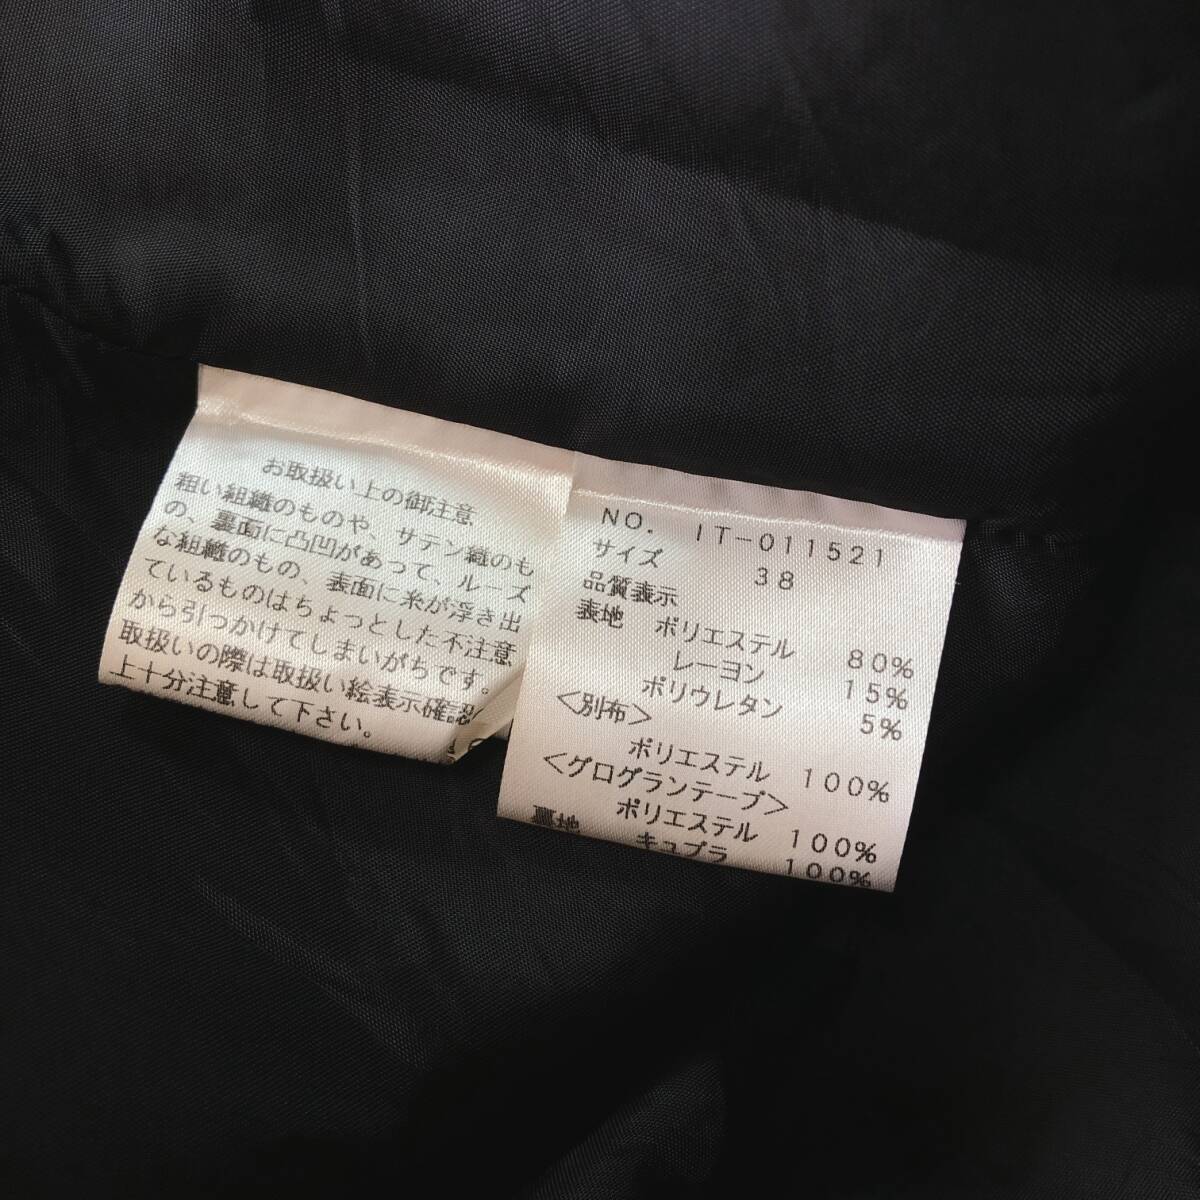 お取扱い上の御注意
粗い組織のものや、サテン織のも
の、裏面に凸凹があって、ルーズ
な組織のもの、表面に糸が浮き出
ているものはちょっとした不注意
から引っかけてしまいがちです。
取扱いの際は取扱い絵表示確認
上十分注意して下さい。
NO. IT-011521
サイズ 38
品質表示
表地 ポリエステル 80%
レーヨン 15%
ポリウレタン 5%
<別布>
ポリエステル 100%
<グログランテープ>
ポリエステル 100%
裏地 キュプラ 100%